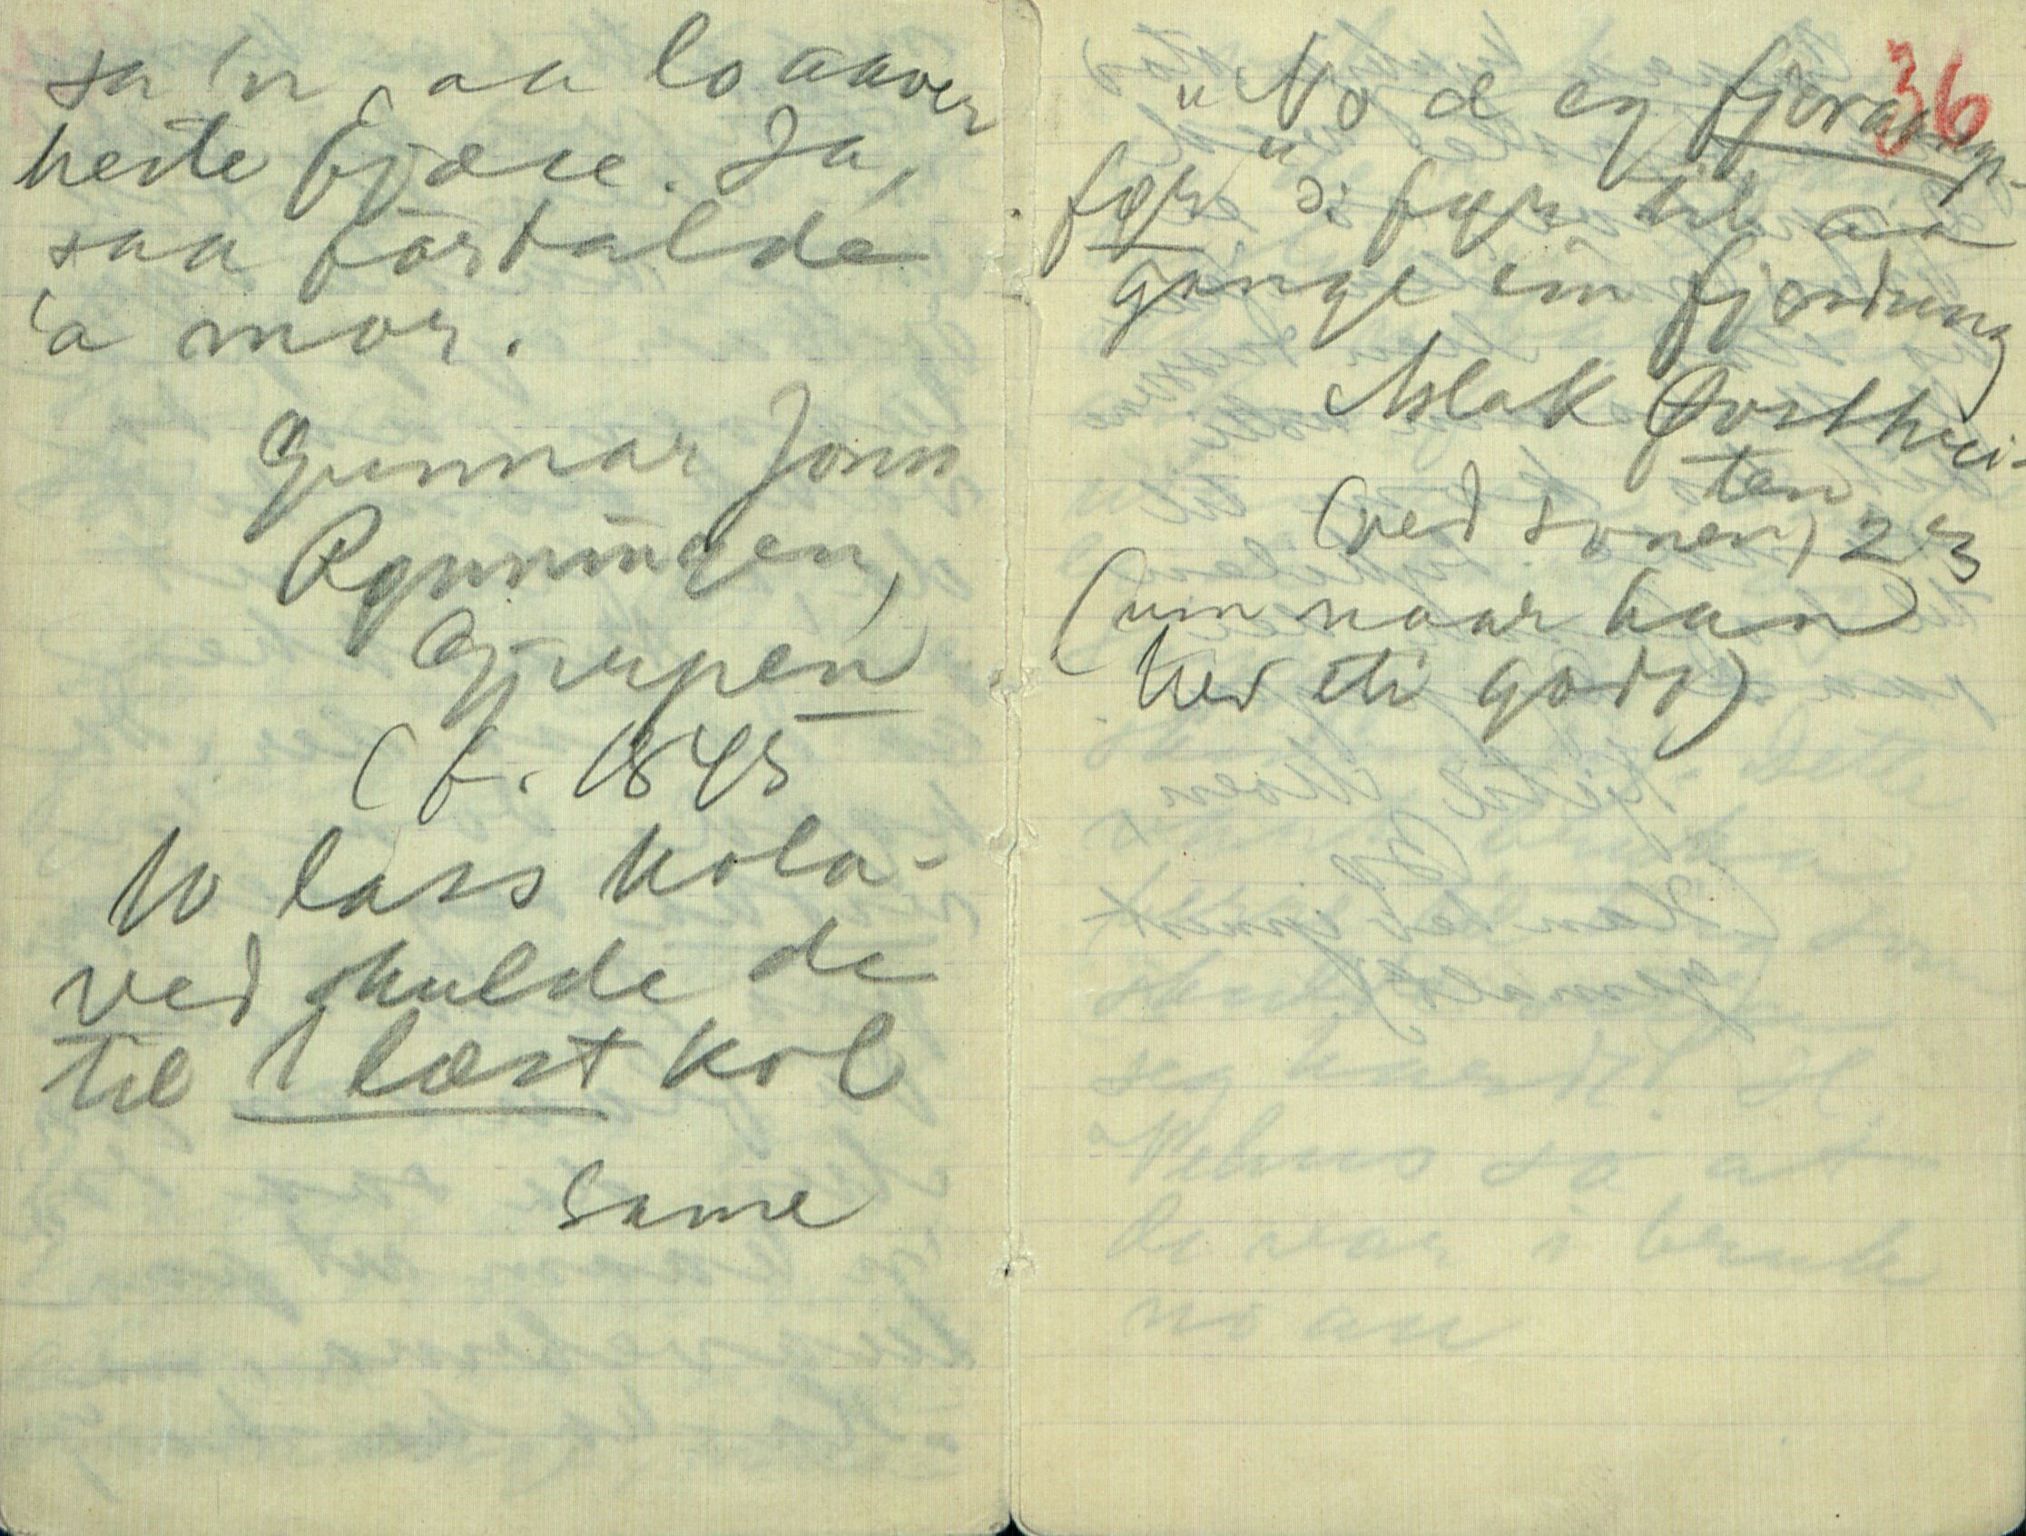 sa 'n, aa lo aaver
heste fjæse. Ja,
saa fortalde
'a mor.
Gunnar Jonn
Rynningen,
Gjerpen
(f. 1845
10 lass kola-
ved skulde de
til 1 læst kol
Same
36
"No æ eg fjorangs-
før" ɔ: før til aa
gange ein fjordung
Aslak Tostvei-
ten
(ved sonen) 23
(um naar han
hev eti godt)